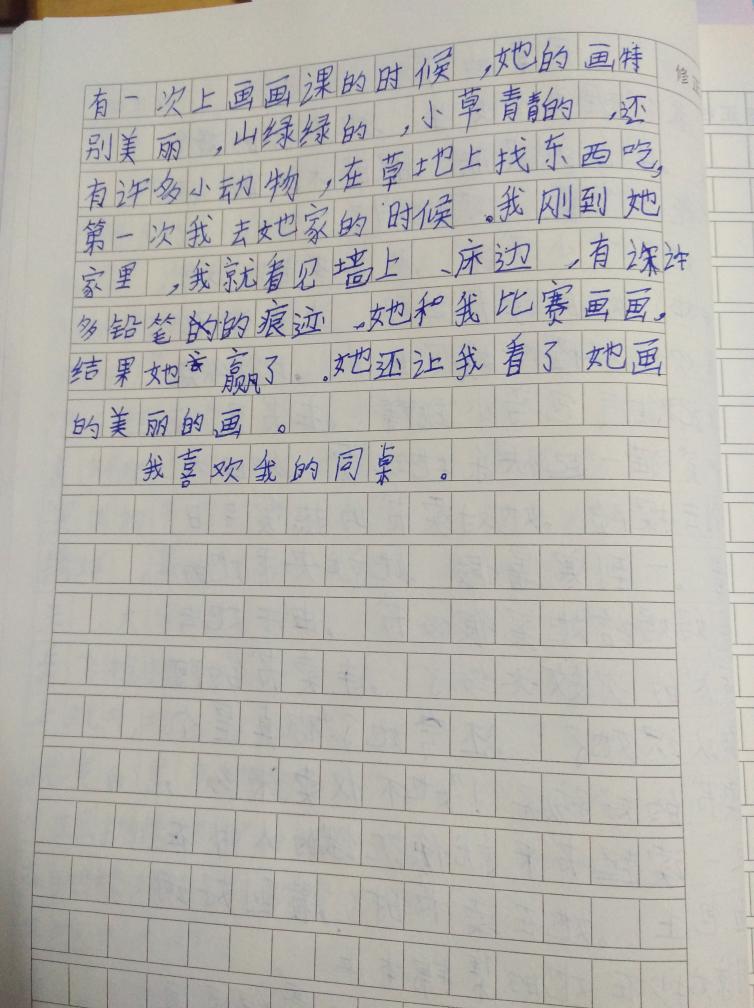 有一次上画画课的时候,她的画特
别美丽,山绿绿的,小草青青的,还
有许多小动物,在草地上找东西吃,
第一次我去她家的时候。我刚到她
家里,我就看见墙上、床边,有许
多铅笔的的痕迹。她和我比赛画画,
结果她赢了。她还让我看了她画
的美丽的画。
我喜欢我的同桌。